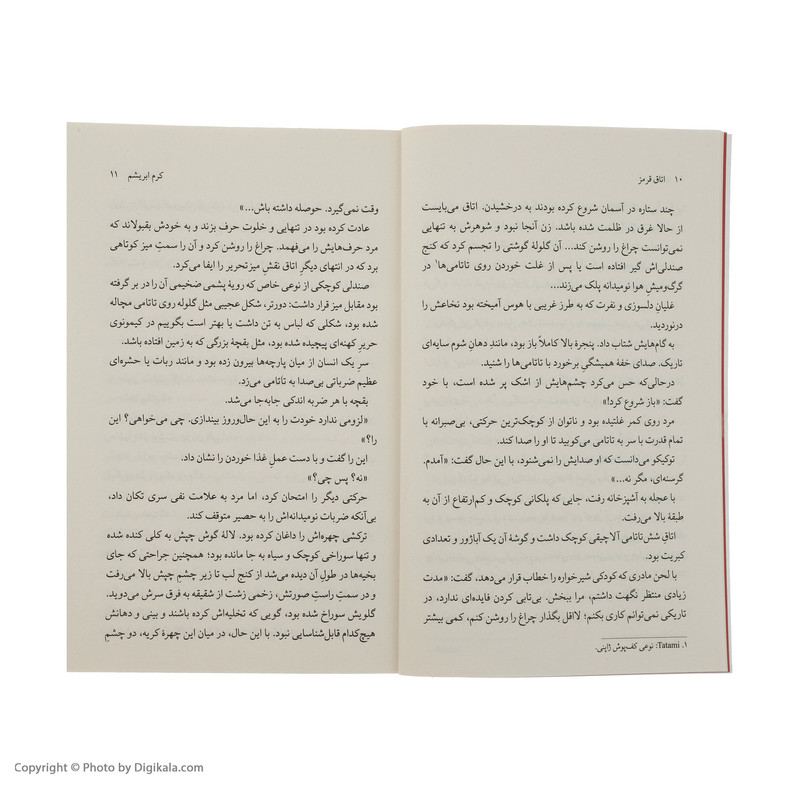 ۱۰ اتاق قرمز
چند ستاره در آسمان شروع کرده بودند به درخشیدن. اتاق می‌بایست
از حالا غرق در ظلمت شده باشد. زن آنجا نبود و شوهرش به تنهایی
نمی‌توانست چراغ را روشن کند... آن گلولهٔ گوشتی را تجسم کرد که کنج
صندلی‌اش گیر افتاده است یا پس از غلت خوردن روی تاتامی‌ها۱ در
گرگ‌ومیشِ هوا نومیدانه پلک می‌زند...
غلیانِ دلسوزی و نفرت که به طرز غریبی با هوس آمیخته بود نخاعش را
درنوردید.
به گام‌هایش شتاب داد. پنجرهٔ بالا کاملاً باز بود، مانندِ دهانِ شوم سایه‌ای
تاریک. صدای خفهٔ همیشگیِ برخورد با تاتامی‌ها را شنید.
درحالی‌که حس می‌کرد چشم‌هایش از اشک پر شده است، با خود
گفت: «باز شروع کرد!»
مرد روی کمر غلتیده بود و ناتوان از کوچک‌ترین حرکتی، بی‌صبرانه با
تمام قدرت با سر به تاتامی می‌کوبید تا او را صدا کند.
توکیکو می‌دانست که او صدایش را نمی‌شنود، با این حال گفت: «آمدم.
گرسنه‌ای، مگر نه...»
با عجله به آشپزخانه رفت، جایی که پلکانی کوچک و کم‌ارتفاع از آن به
طبقهٔ بالا می‌رفت.
اتاقِ شش‌تاتامی آلاچیقی کوچک داشت و گوشهٔ آن یک آباژور و تعدادی
کبریت بود.
با لحن مادری که کودکی شیرخواره را خطاب قرار می‌دهد، گفت: «مدت
زیادی منتظرِ نگهت داشتم، مرا ببخش. بی‌تابی کردن فایده‌ای ندارد، در
تاریکی نمی‌توانم کاری بکنم؛ لااقل بگذار چراغ را روشن کنم، کمی بیشتر
۱. Tatami: نوعی کف‌پوش ژاپنی.
کرم ابریشم ۱۱
وقت نمی‌گیرد. حوصله داشته باش...»
عادت کرده بود در تنهایی و خلوت حرف بزند و به خودش بقبولاند که
مرد حرف‌هایش را می‌فهمد. چراغ را روشن کرد و آن را سمتِ میز کوتاهی
برد که در انتهای دیگرِ اتاق نقشِ میزتحریر را ایفا می‌کرد.
صندلی کوچکی از نوعی خاص که رویهٔ پشمی ضخیمی آن را در بر گرفته
بود مقابل میز قرار داشت: دورتر، شکل عجیبی مثل گلوله روی تاتامی مچاله
شده بود، شکلی که لباس به تن داشت یا بهتر است بگوییم در کیمونوی
حریر کهنه‌ای پیچیده شده بود، مثل بقچهٔ بزرگی که به زمین افتاده باشد.
سرِ یک انسان از میان پارچه‌ها بیرون زده بود و مانند ربات یا حشره‌ای
عظیم ضرباتی بی‌صدا به تاتامی می‌زد.
بقچه با هر ضربه اندکی جابه‌جا می‌شد.
«لزومی ندارد خودت را به این حال‌وروز بیندازی. چی می‌خواهی؟ این
را؟»
این را گفت و با دست عملِ غذا خوردن را نشان داد.
«نه؟ پس چی؟»
حرکتی دیگر را امتحان کرد، اما مرد به علامت نفی سری تکان داد،
بی‌آنکه ضربات نومیدانه‌اش را به حصیر متوقف کند.
ترکشی چهره‌اش را داغان کرده بود. لالهٔ گوش چپش به کلی کنده شده
و تنها سوراخی کوچک و سیاه به جا مانده بود؛ همچنین جراحتی که جای
بخیه‌ها در طولِ آن دیده می‌شد از کنج لب تا زیر چشمِ چپش بالا می‌رفت
و در سمتِ راستِ صورتش، زخمی زشت از شقیقه به فرق سرش می‌دوید.
گلویش سوراخ شده بود، گویی که تخلیه‌اش کرده باشند و بینی و دهانش
هیچ‌کدام قابل‌شناسایی نبود. با این حال، در میان این چهرهٔ کریه، دو چشمِ
Copyright © Photo by Digikala.com